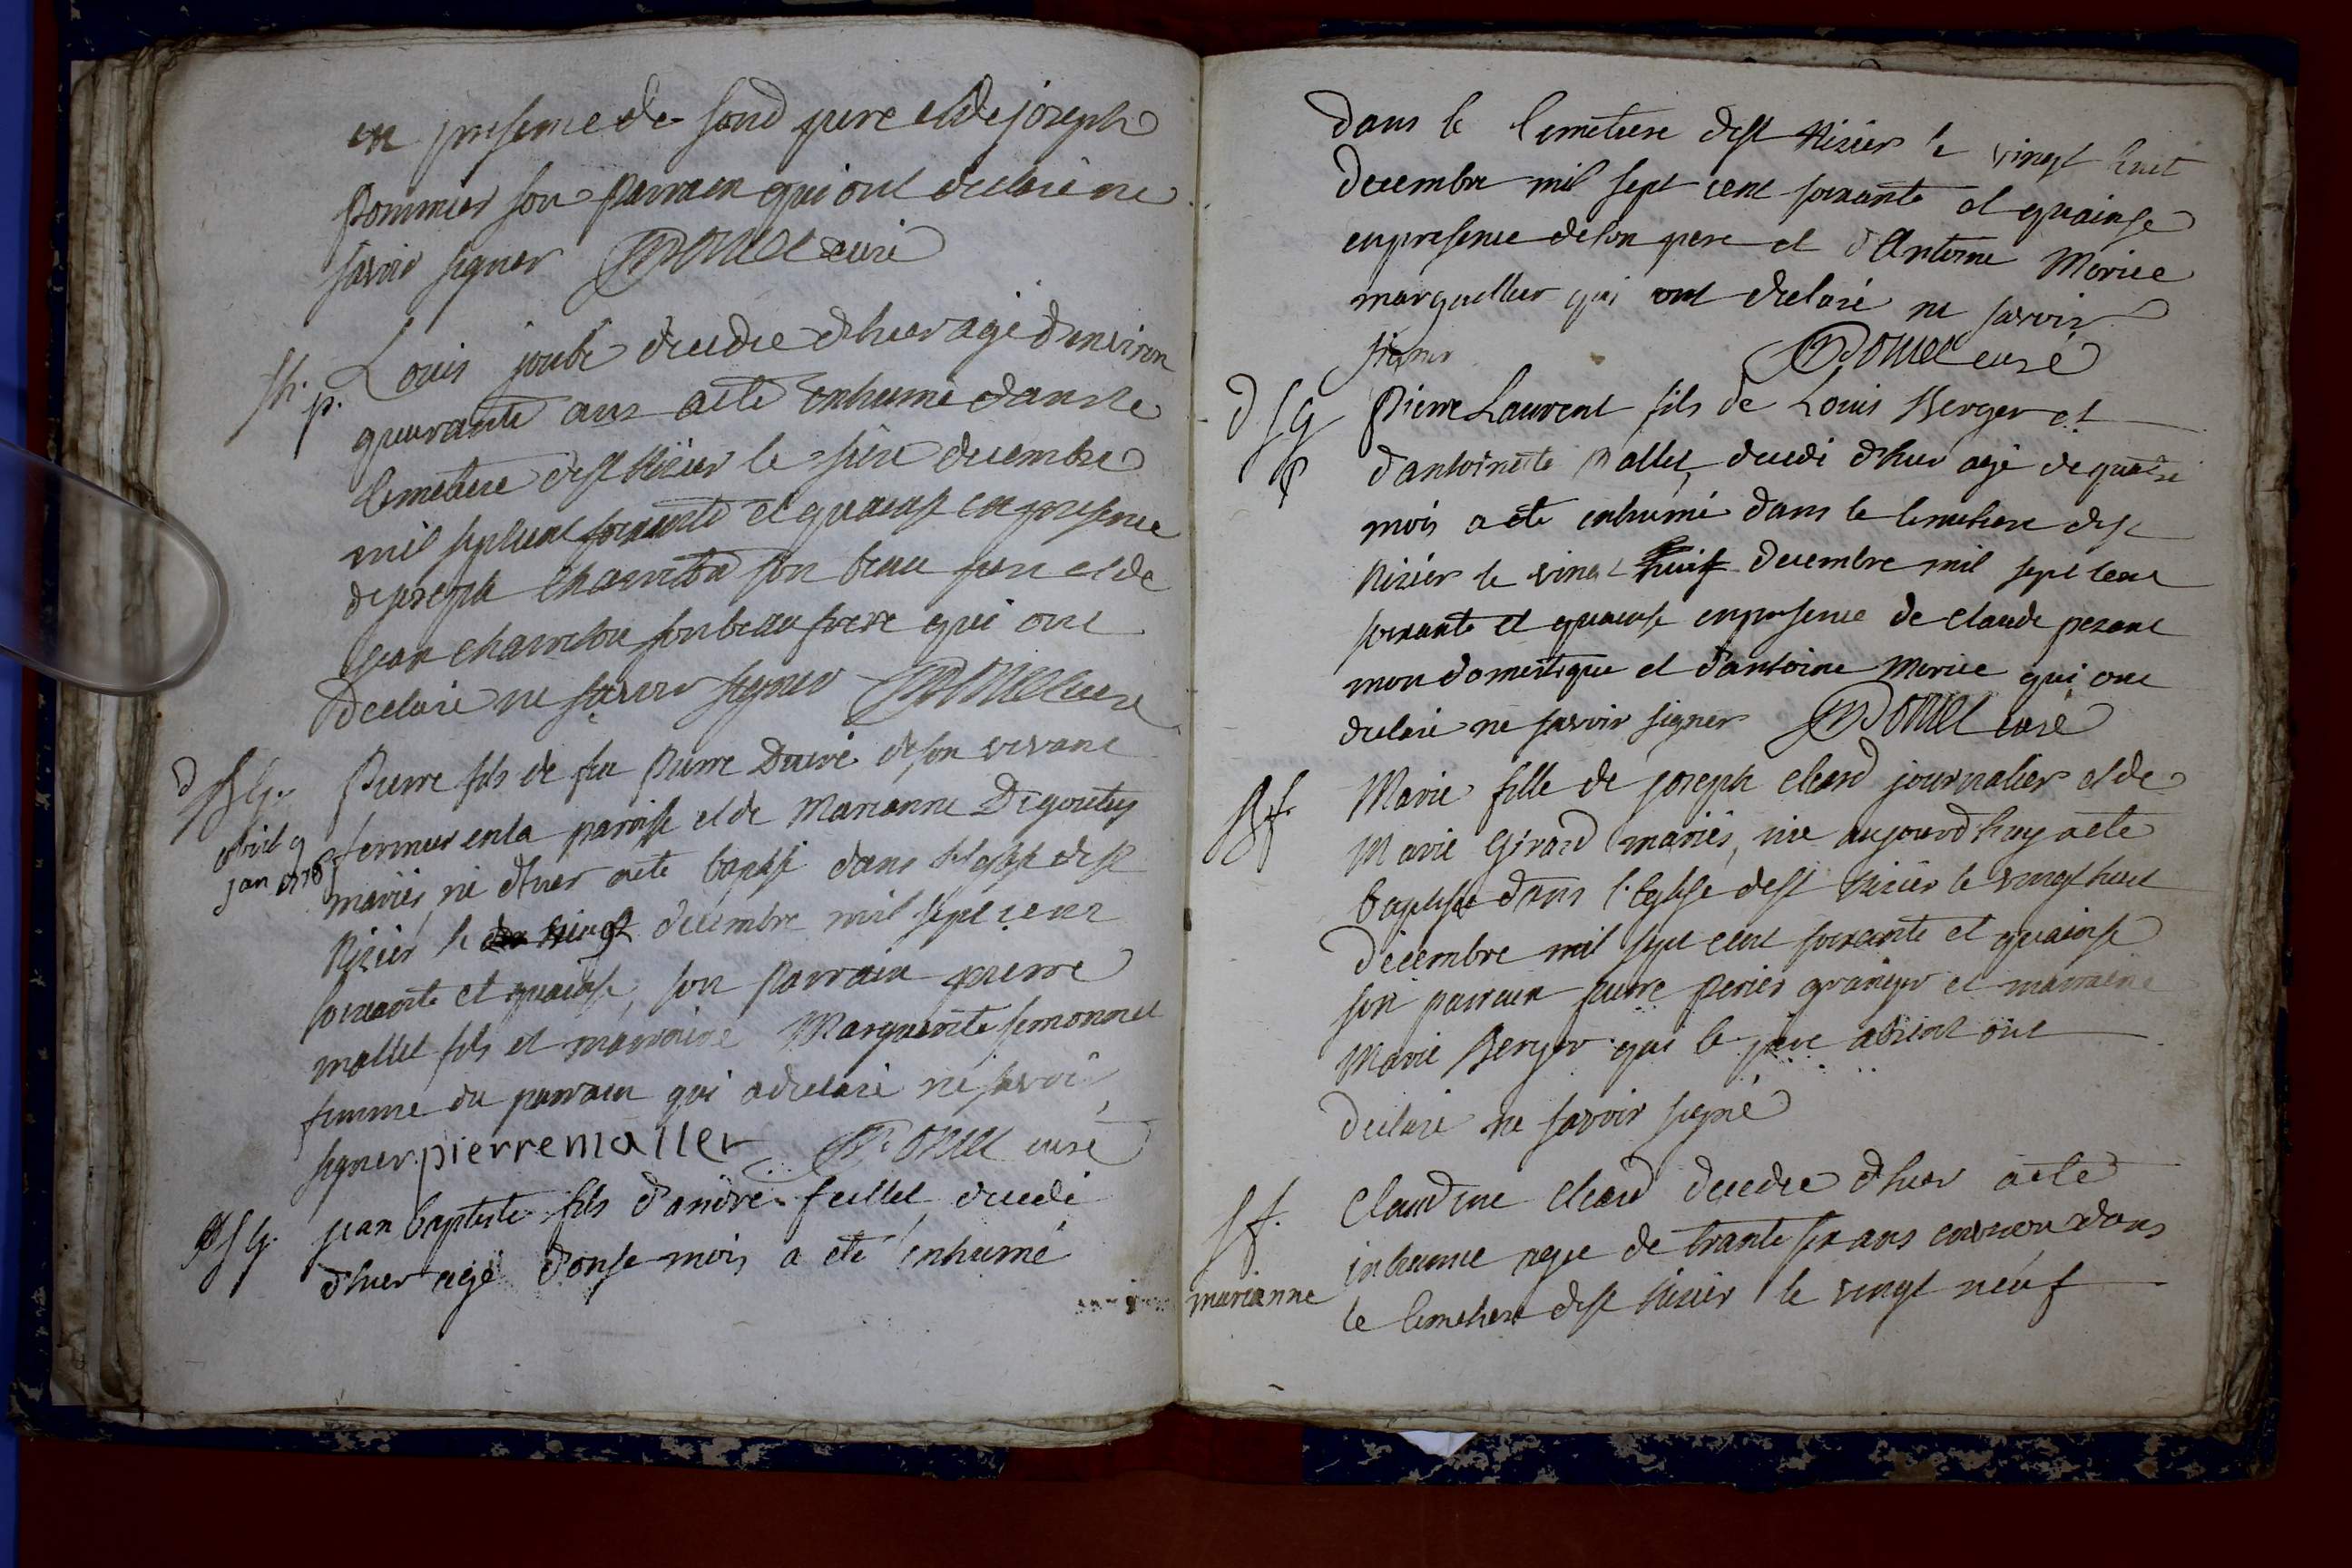 en presence de sond pere et de joseph
Pommier son Parrain qui ont declaré ne
savoir signer Donet curé
Sh. p. Louis joube decedee d'hier agé d'environ
quarante ans a eté enhumé dans le
Cimetiere de st Nizier le seize decembre
mil sept cent soixante et quainse en presence
de joseph Chambon son beau pere et de
jean chambon son beau frere qui ont
declaré ne savoir signer Donet curé
Pierre fils de feu Pierre de son vivant
fermier en la paroisse et de Marianne Degoutes
mariés, né d'hier a eté baptisé dans l'eglise de st
Nizier le vingt decembre mil sept cent
soixante et quainse, son Parrain pierre
mallet fils et marraine Marguerite simonnet
femme du parrain qui a declaré ne savoir
signer. pierre maller Donet curé
jean baptiste fils d'andré feillet decedé
d'hier agé d'onse mois a eté inhumé
dans le Cimetiere de st Nizier le vingt huit
decembre mil sept cent soixante et quainse
en presence de son pere et d'Antoine Morice
marguellier qui ont declaré ne savoir
signer Donet curé
d s g p Pierre Laurent fils de Louis Berger et
d'antoinette Mallet, decedé d'hier agé de quatre
mois a eté enhumé dans le Cimetiere de st
Nizier le vingt huit decembre mil sept cent
soixante et quainse en presence de claude pezant
mon domestique et d'antoine Morice qui ont
declaré ne savoir signer Donet curé
B f. Marie fille de joseph cleard journalier et de
Marie Girard mariés, née aujourd'huy a eté
baptisée dans l'Eglise de st Nizier le vingt huit
decembre mil sept cent soixante et quainse
son parrain pierre perier granger et marraine
Marie Berger qui le pere absent ont
declaré ne savoir signé
S f. Claudine cleard decedee d'hier a eté
inhumee agee de trante six ans environ dans
marianne
le Cimetiere de st Nizier le vingt neuf